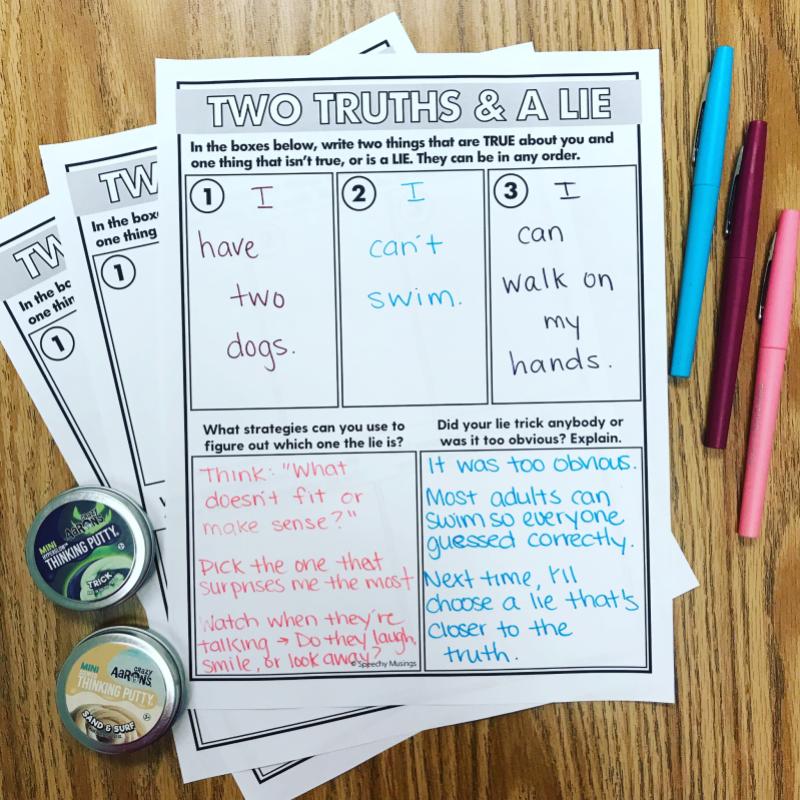 TWO TRUTHS & A LIE
In the boxes below, write two things that are TRUE about you and
one thing that isn't true, or is a LIE. They can be in any order.
1 I
have
two
dogs.
2 I
can't
swim.
3 I
can
walk on
my
hands.
What strategies can you use to
figure out which one the lie is?
Think: "What
doesn't fit or
make sense?"
Pick the one that
surprises me the most
Watch when they're
talking → Do they laugh,
smile, or look away?
© Speechy Musings
Did your lie trick anybody or
was it too obvious? Explain.
It was too obvious.
Most adults can
swim so everyone
guessed correctly.
Next time, I'll
choose a lie that's
closer to the
truth.
TW
In the box
one thing
1
TW
In the bo
one thin
1
CRAZY
AARON'S
MINI
THINKING PUTTY
TRICK
CRAZY
MINI AARON'S
THINKING PUTTY
SAND & SURF